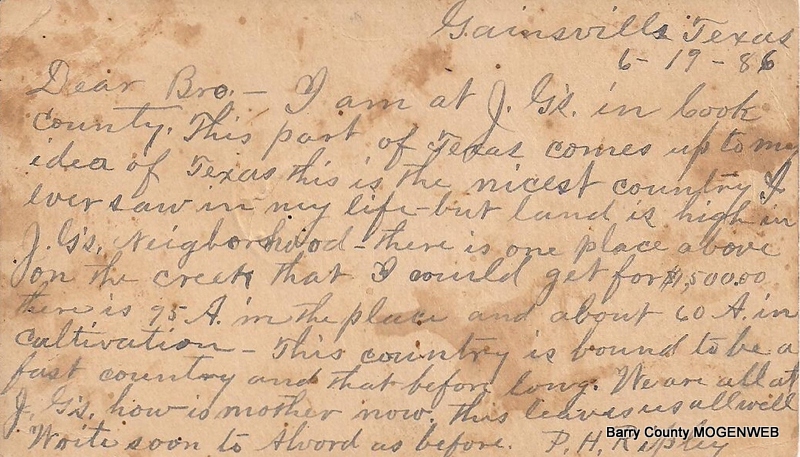 Gainsville Texas
6-19-86
Dear Bro.- I am at J. G's. in Cook
county. This part of Texas comes up to my
idea of Texas this is the nicest country I
ever saw in my life-but land is high in
J. G's. Neigborhood-there is one place above
on the creek that I could get for $1,500.00
there is 75 A. in the place and about 60 A. in
cultivation - This country is bound to be a
fast country and that before long. We are all at
J. G's. how is mother now. this leaves us all well
Write soon to Alvord as before. P. H. Ripley
Barry County MOGENWEB